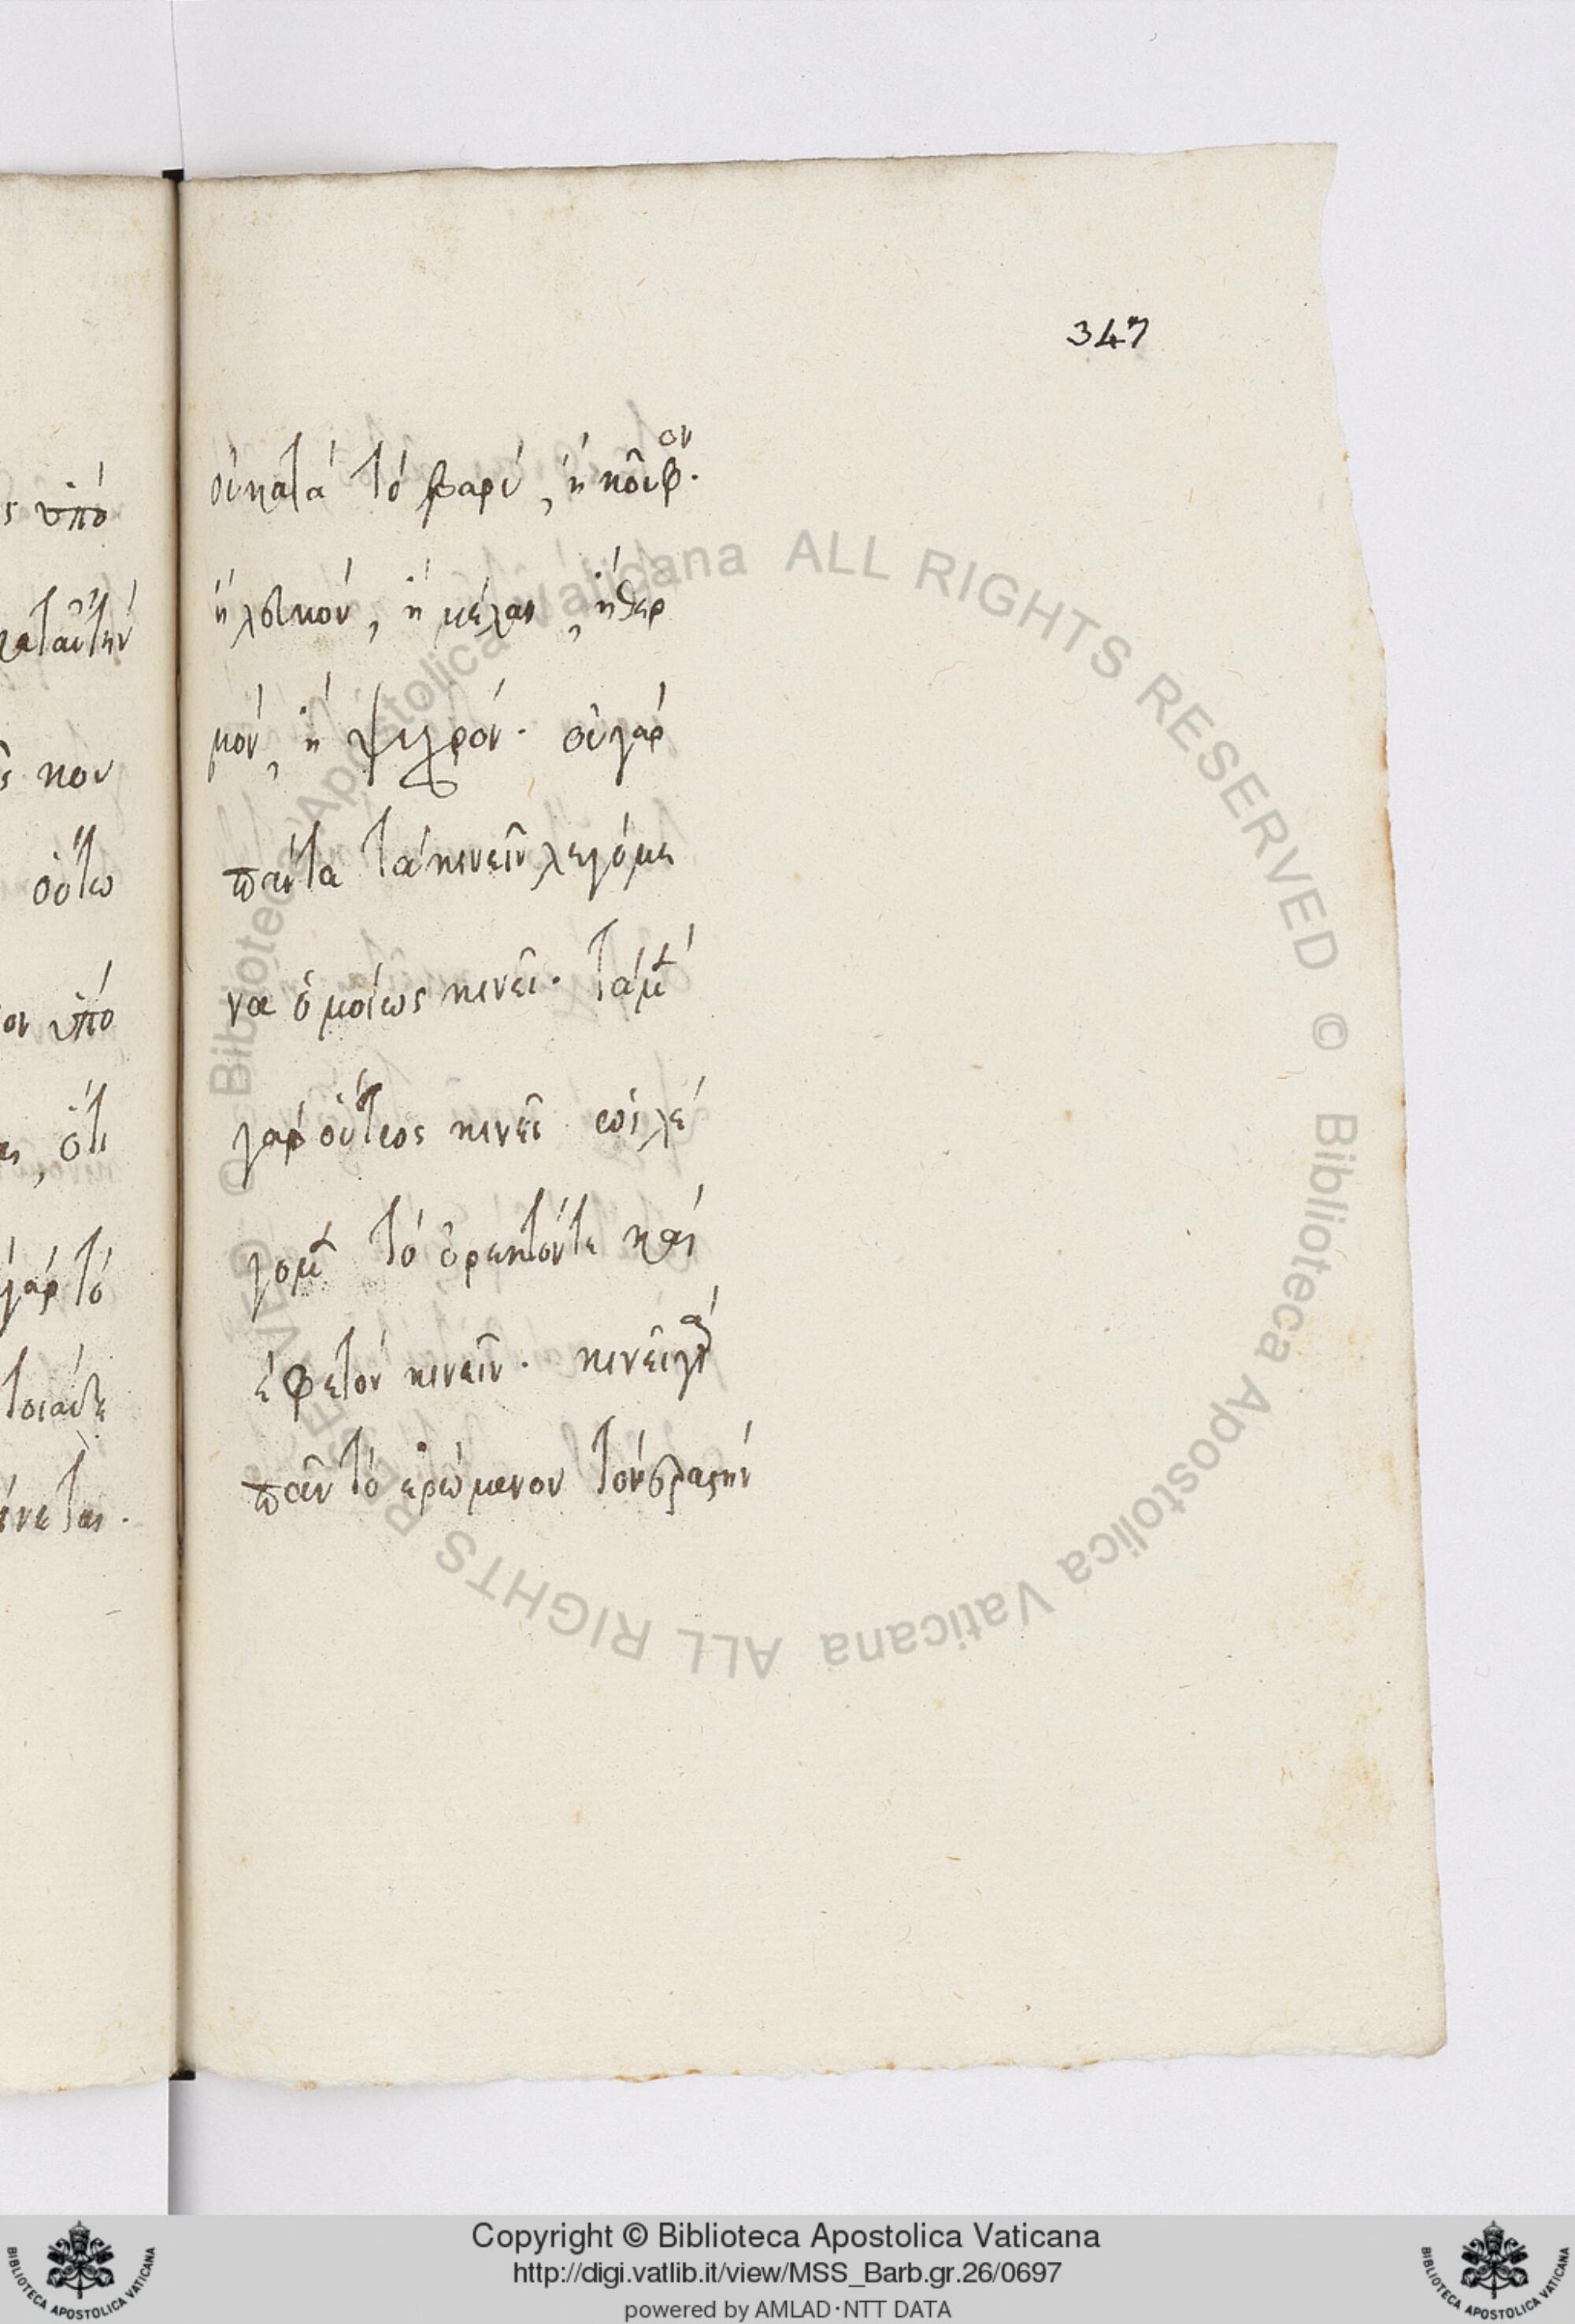 347
οὐ κατὰ τὸ βαρὺ, ἢ κοῦφον.
ἢ λευκὸν, ἢ μέλαν, ἢ θερ
μὸν, ἢ ψυχρόν. οὐ γὰρ
πάντα τὰ κινεῖν λεγόμε
να ὁμοίως κινεῖ. τὰ μὲν
γὰρ οὕτως κινεῖ ὡς λέ
γομεν τὸ ὀρεκτόν τε καὶ
ἐφετὸν κινεῖν. κινεῖ γὰρ
πᾶν τὸ ἐρώμενον τὸν ἐραστὴν
ὑπό
κατ' αὐτὴν
κον
οὕτω
ον ὑπό
ὅτι
γὰρ τὸ
τοιαῦτα
Copyright © Biblioteca Apostolica Vaticana
http://digi.vatlib.it/view/MSS_Barb.gr.26/0697
powered by AMLAD·NTT DATA
BIBLIOTECA APOSTOLICA VATICANA
BIBLIOTECA APOSTOLICA VATICANA
© Biblioteca Apostolica Vaticana ALL RIGHTS RESERVED © Biblioteca Apostolica Vaticana ALL RIGHTS RESERVED